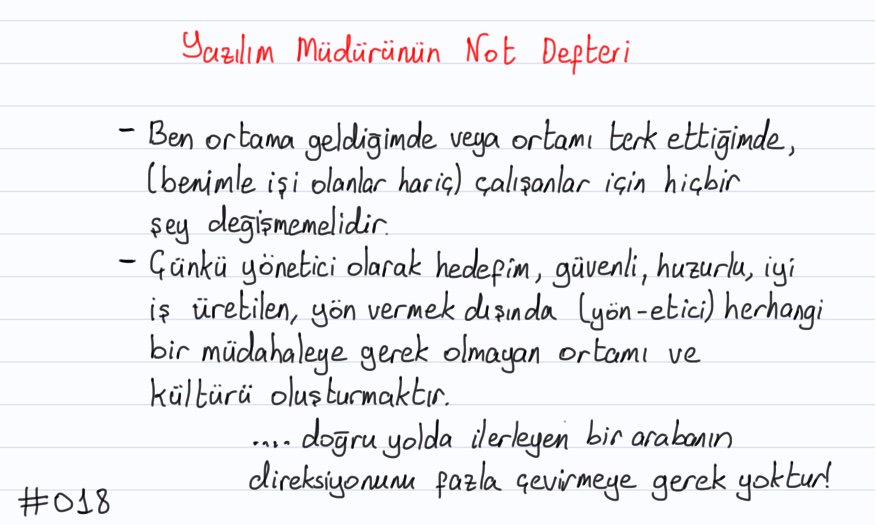 Yazılım Müdürünün Not Defteri
- Ben ortama geldiğimde veya ortamı terk ettiğimde,
(benimle işi olanlar hariç) çalışanlar için hiçbir
şey değişmemelidir.
- Çünkü yönetici olarak hedefim, güvenli, huzurlu, iyi
iş üretilen, yön vermek dışında (yön-etici) herhangi
bir müdahaleye gerek olmayan ortamı ve
kültürü oluşturmaktır.
.... doğru yolda ilerleyen bir arabanın
direksiyonunu fazla çevirmeye gerek yoktur!
#018